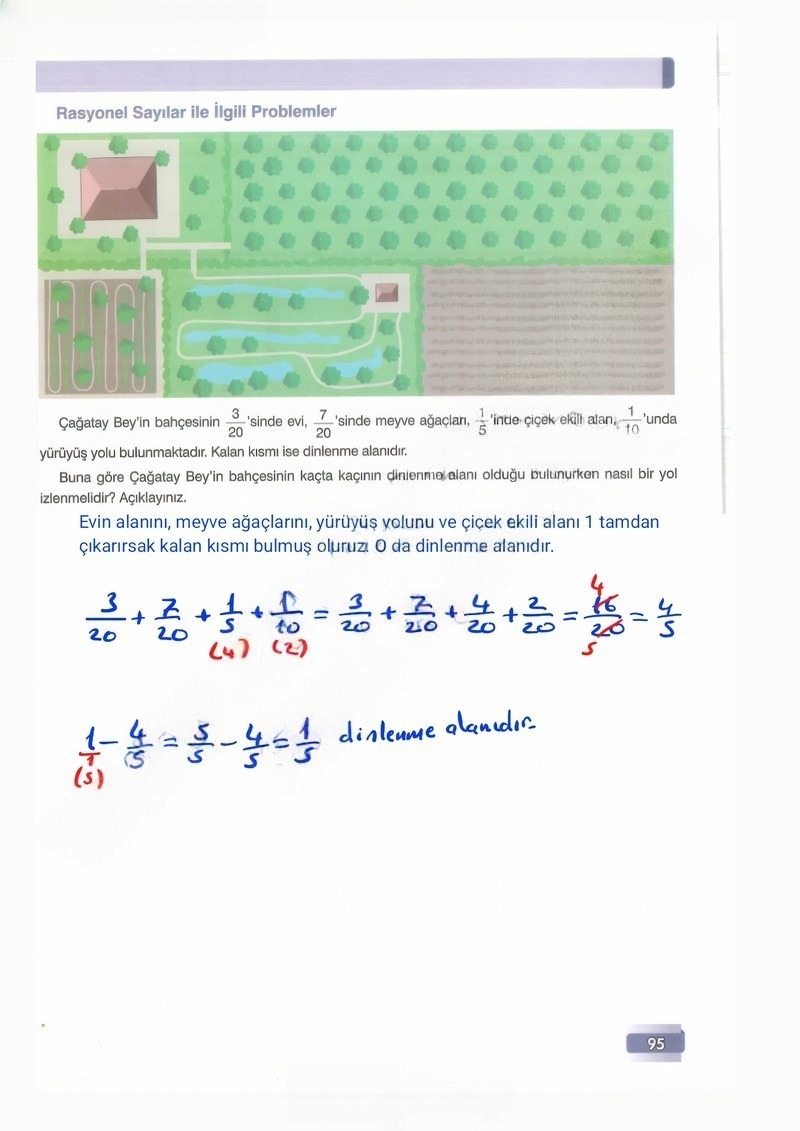 Rasyonel Sayılar ile İlgili Problemler
Çağatay Bey'in bahçesinin 3/20'sinde evi, 7/20'sinde meyve ağaçları, 1/5'inde çiçek ekili alan, 1/10'unda
yürüyüş yolu bulunmaktadır. Kalan kısmı ise dinlenme alanıdır.
Buna göre Çağatay Bey'in bahçesinin kaçta kaçının dinlenme alanı olduğu bulunurken nasıl bir yol
izlenmelidir? Açıklayınız.
Evin alanını, meyve ağaçlarını, yürüyüş yolunu ve çiçek ekili alanı 1 tamdan
çıkarırsak kalan kısmı bulmuş oluruz. O da dinlenme alanıdır.
3/20 + 7/20 + 1/5 + 1/10 = 3/20 + 7/20 + 4/20 + 2/20 = 16/20 = 4/5
(4) (2) 4 5
1/1 - 4/5 = 5/5 - 4/5 = 1/5 dinlenme alanıdır
(5)
95